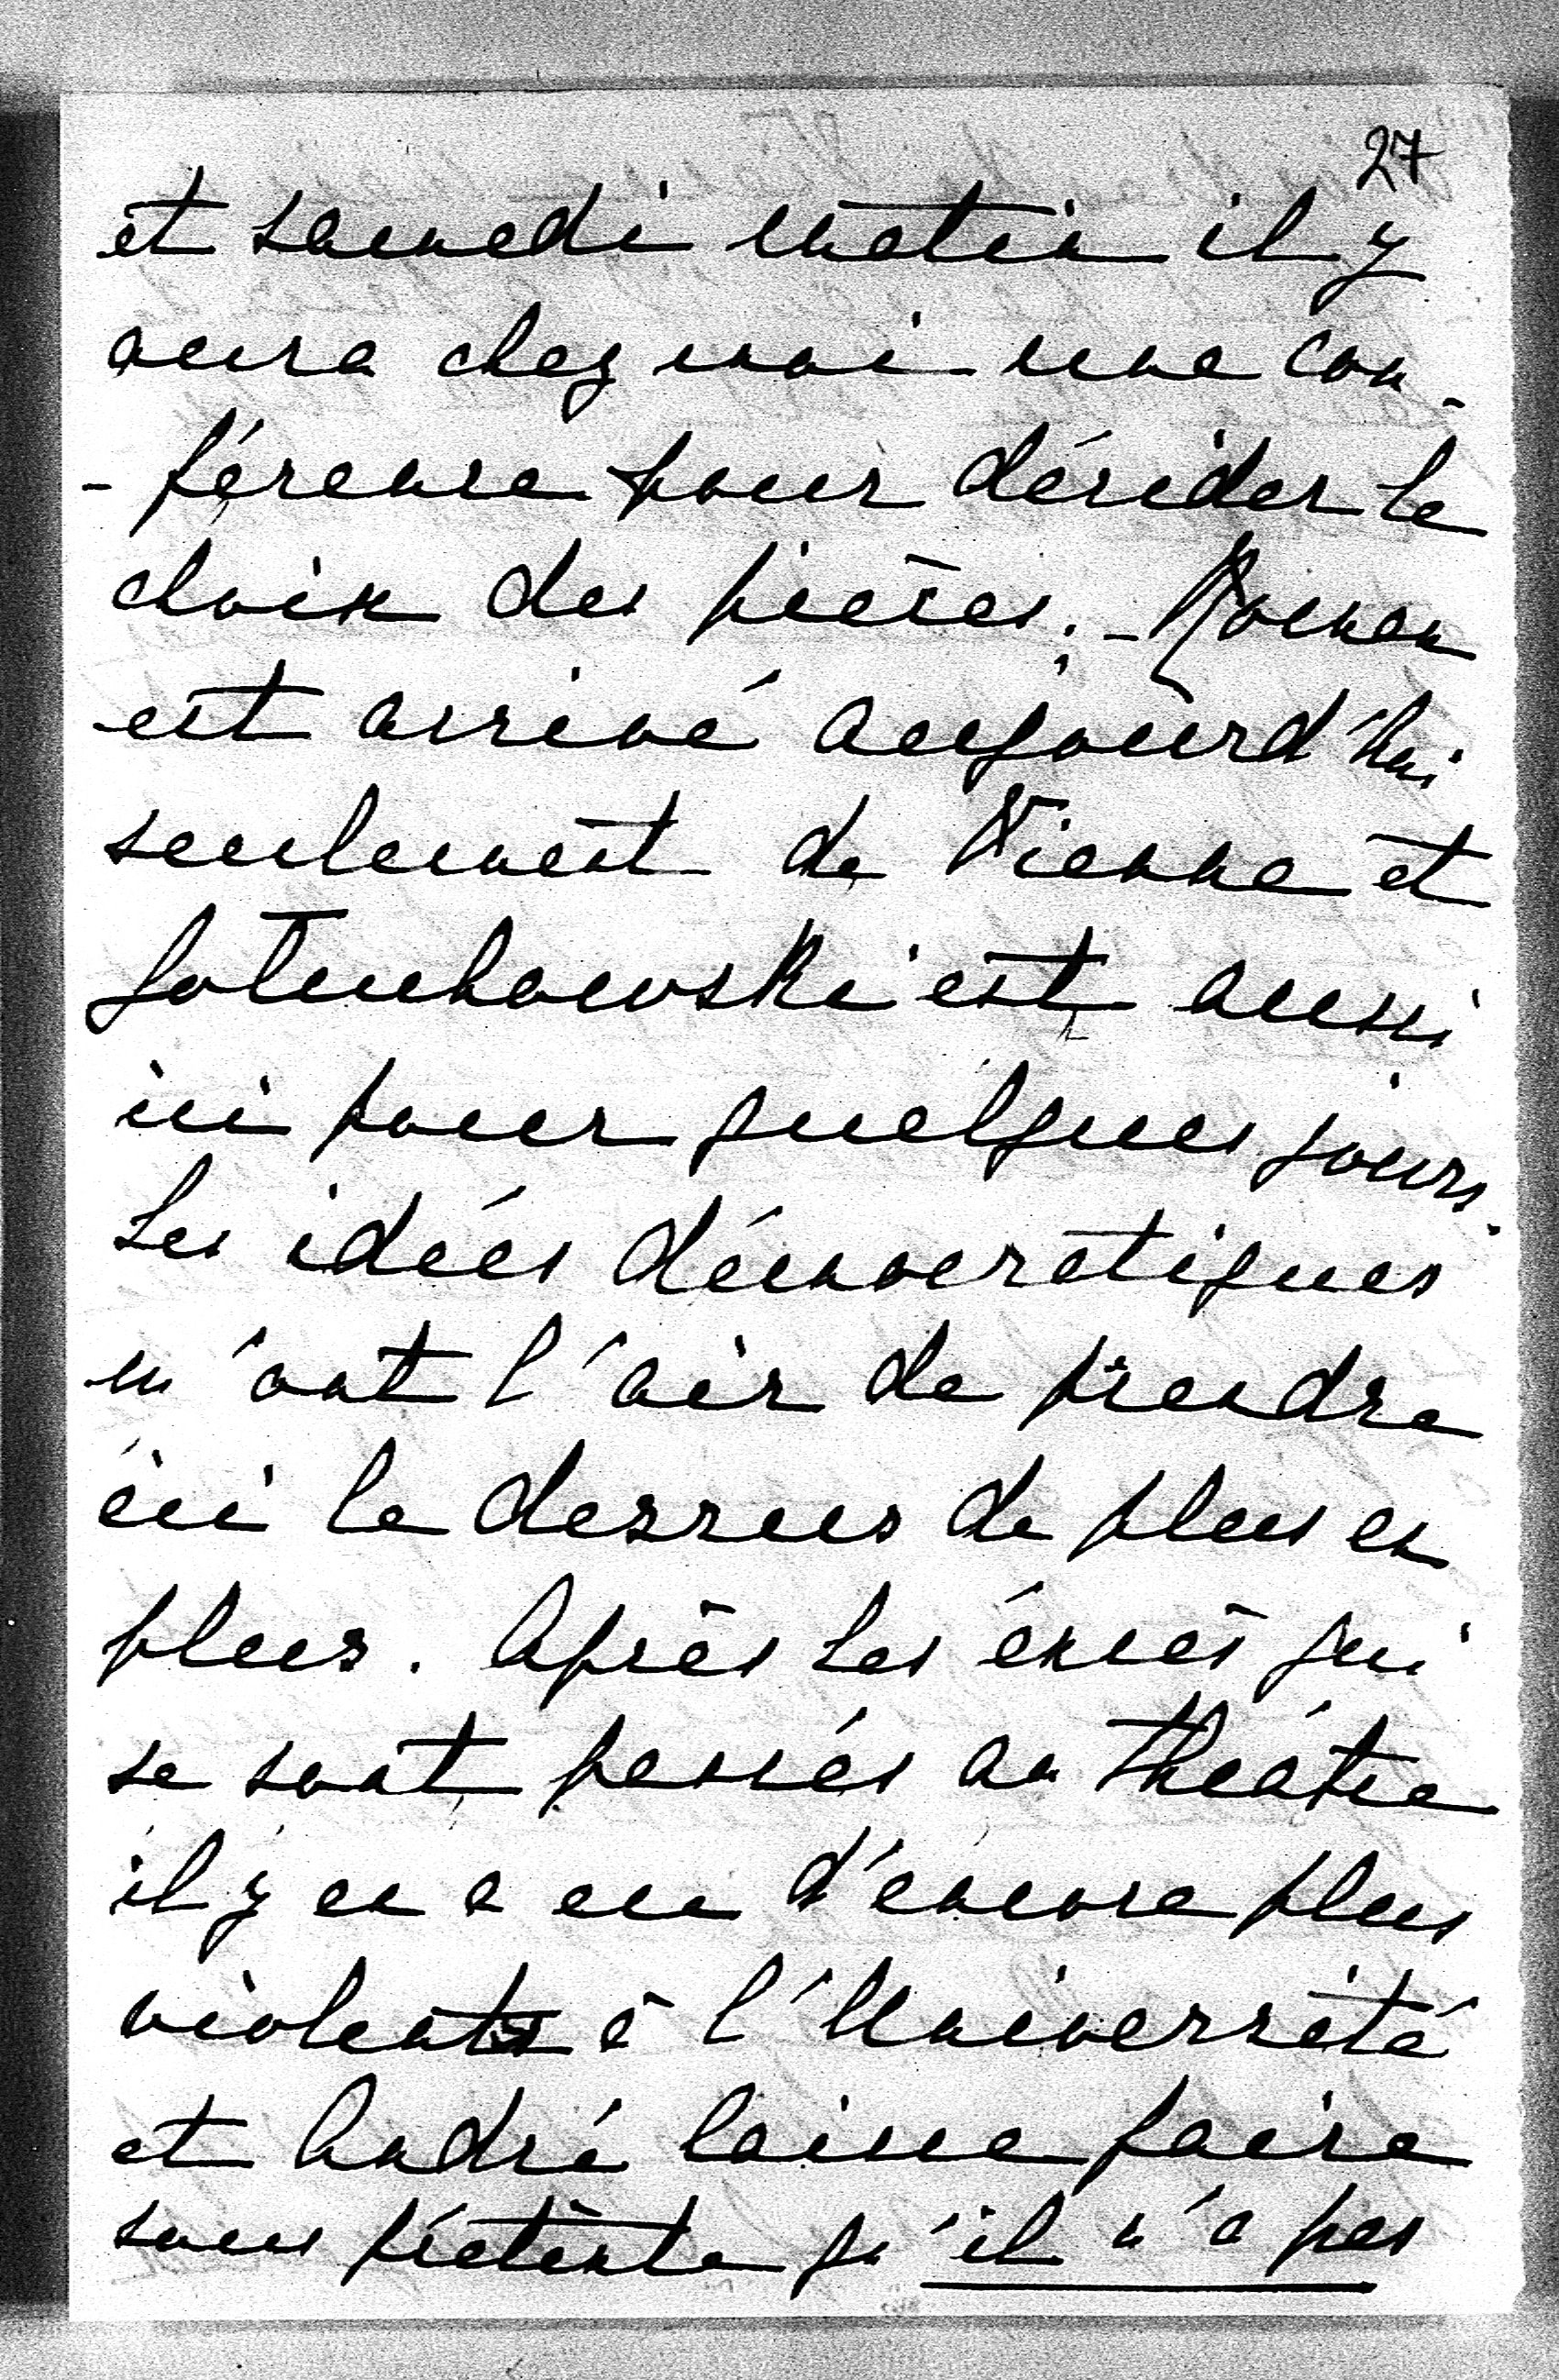 27
et samedi matin il y
aura chez moi une con-
-férence pour décider le
choix des pièces. - Roman
est arrivé aujourd'hui
seulement de Vienne et
Gołuchowski est aussi
ici pour quelques jours.
Les idées démocratiques
m'ont l'air de prendre
ici le dessus de plus en
plus. Après les éxcès qui
se sont passés au théâtre
il y en a eu d'encore plus
violents à l'Université
et André laisse faire
sous prétexte qu'il n'a pas